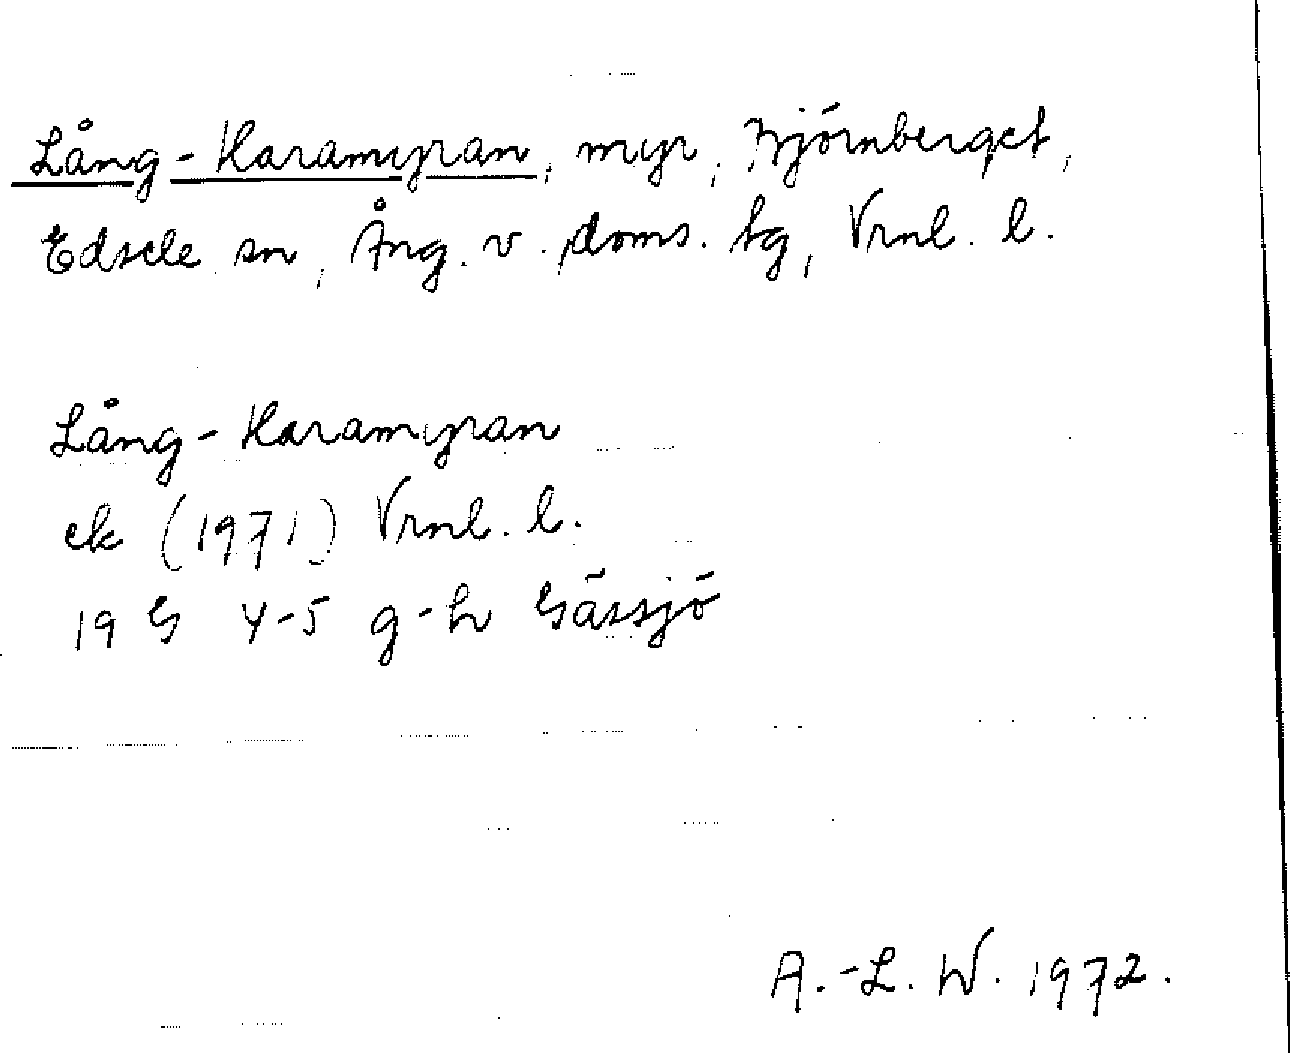 Lång-Karamyran, myr, Björnberget,
Edsele sn, Ång. v. doms. tg, Vrnl. l.
Lång-Karamyran
ek (1971) Vrnl. l.
19 G 4-5 g-h Gåssjö
A.-L. W. 1972.